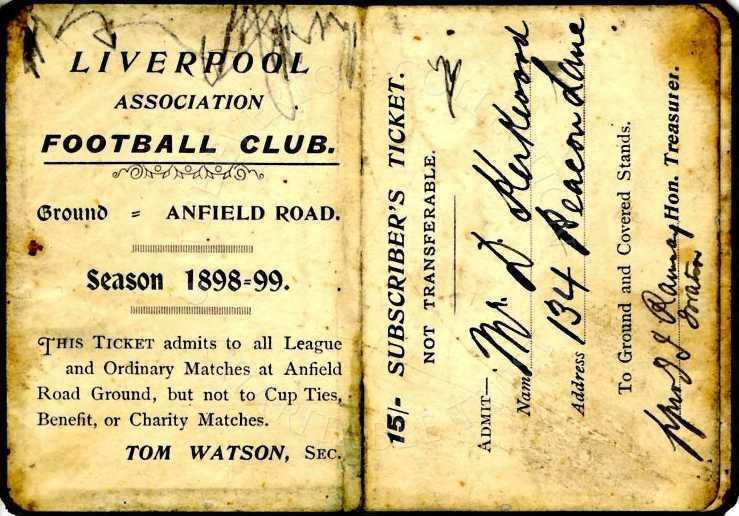 LIVERPOOL
ASSOCIATION
FOOTBALL CLUB.
Ground = ANFIELD ROAD.
Season 1898=99.
THIS TICKET admits to all League
and Ordinary Matches at Anfield
Road Ground, but not to Cup Ties,
Benefit, or Charity Matches.
TOM WATSON, SEC.
15/- SUBSCRIBER'S TICKET.
NOT TRANSFERABLE.
ADMIT—
Name Mr. D. Kirkwood
Address 134 Beacon Lane
To Ground and Covered Stands.
Ramsay Hon. Treasurer.